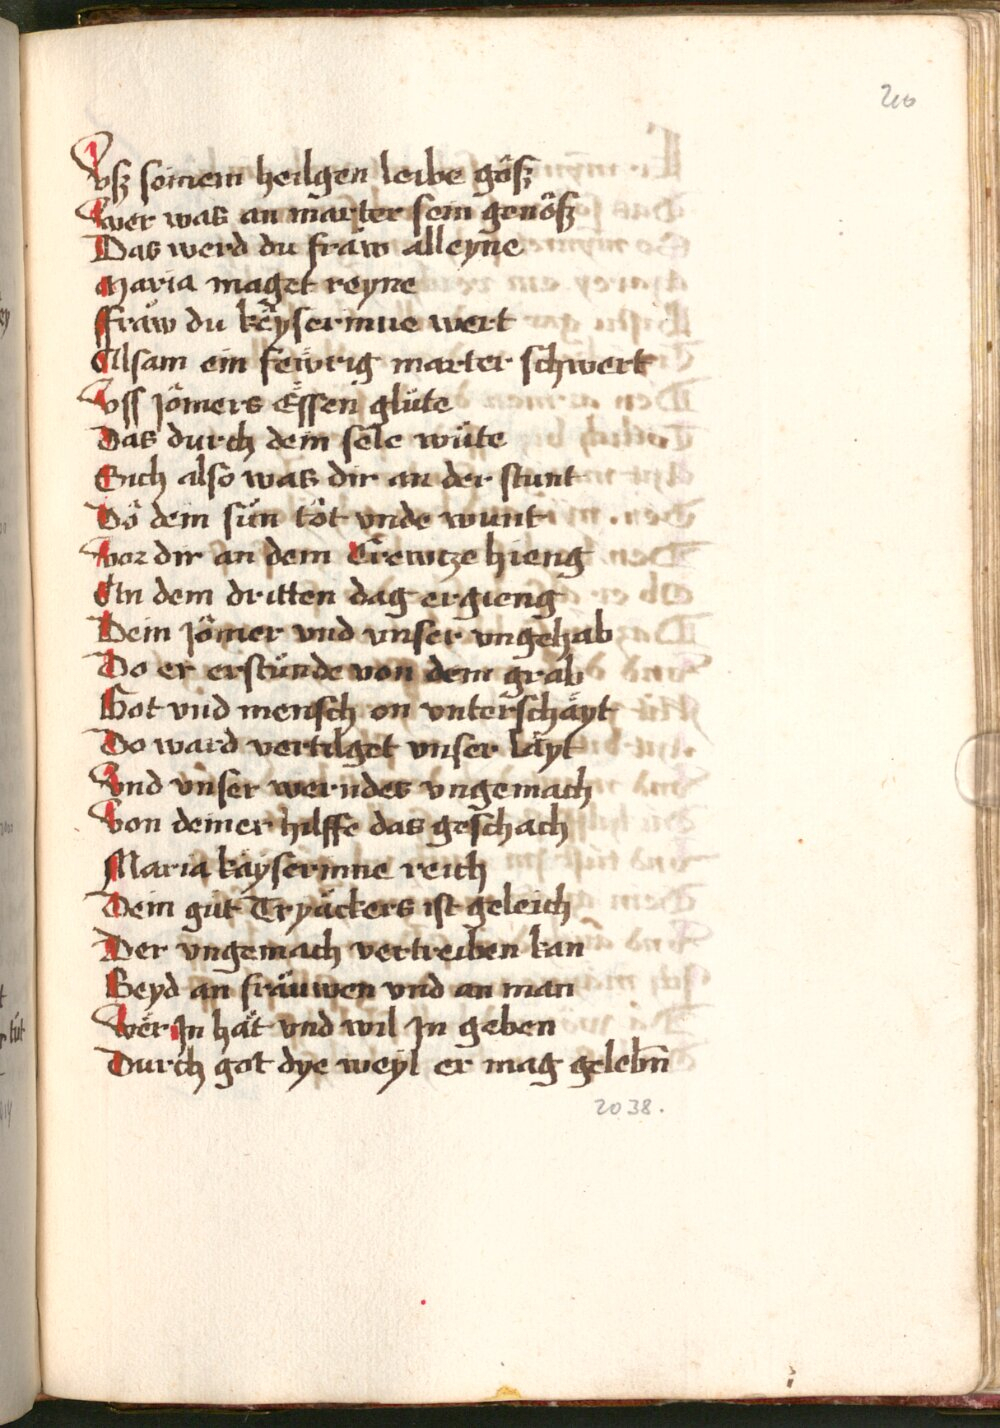 210
Vsz seinem heilgen leibe gôsz
Wer was an marter sein genôsz
Das werd du fraw alleyne
Maria maget reyne
ffraw du keyserinne wert
Alsam ein fewrig marter schwert
Vss jômers Essen glüte
Das durch dein sele wüte
Sich also was dir an der stunt
Dô dein sün tôt vnde wunt
Vor dir an dem Crewtze hieng
An dem dritten dag ergieng
Dein jômer vnd vnser vngehab
Do er erstünde von dem grab
Got vnd mensch on vnterschäyt
Do ward vertilget vnser läyt
Vnd vnser werndes vngemach
Von deiner hilffe das geschach
Maria käyserinne reich
Dein güt Tryäckers ist geleich
Der vngemach vertreiben kan
Beyd an fräuwen vnd an man
Wer jn hät vnd wil jn geben
Durch got dye weyl er mag gelebn̄
2038.